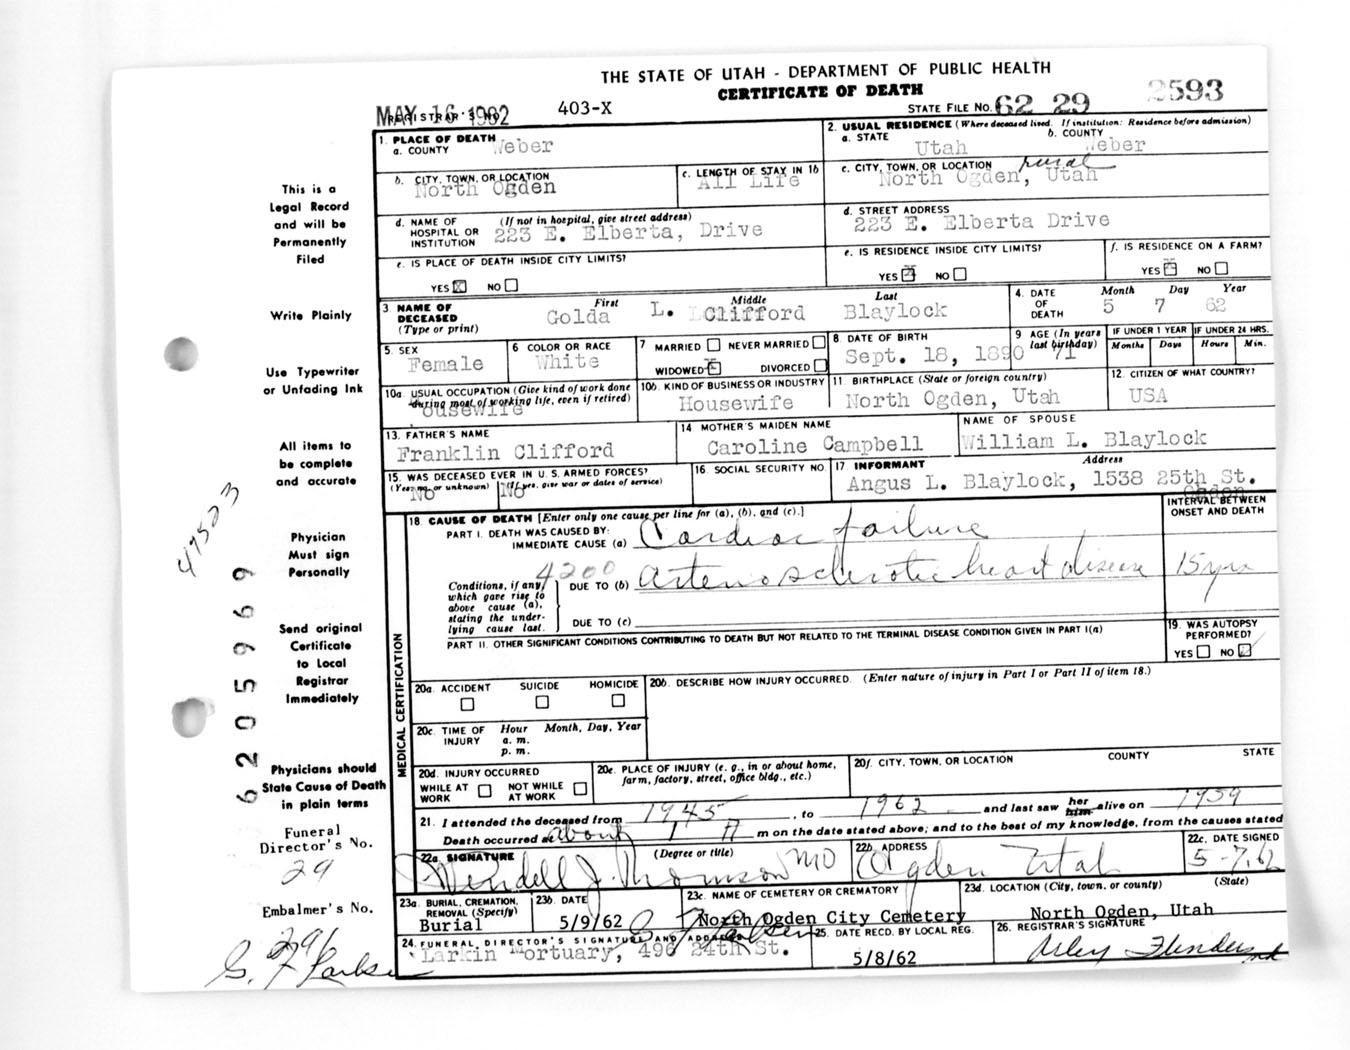 THE STATE OF UTAH - DEPARTMENT OF PUBLIC HEALTH
CERTIFICATE OF DEATH
MAY 16 1962
REGISTRAR'S NO.
403-X
STATE FILE NO. 62 29 2593
1. PLACE OF DEATH
a. COUNTY Weber
2. USUAL RESIDENCE (Where deceased lived. If institution: Residence before admission)
a. STATE Utah
b. COUNTY Weber
b. CITY, TOWN, OR LOCATION
North Ogden
c. LENGTH OF STAY IN 1b
All Life
c. CITY, TOWN, OR LOCATION rural
North Ogden, Utah
d. NAME OF HOSPITAL OR INSTITUTION (If not in hospital, give street address)
223 E. Elberta, Drive
d. STREET ADDRESS
223 E. Elberta Drive
e. IS PLACE OF DEATH INSIDE CITY LIMITS?
YES X NO
e. IS RESIDENCE INSIDE CITY LIMITS?
YES X NO
f. IS RESIDENCE ON A FARM?
YES X NO
3. NAME OF DECEASED (Type or print)
First Middle Last
Golda L. Clifford Blaylock
4. DATE OF DEATH
Month Day Year
5 7 62
5. SEX
Female
6 COLOR OR RACE
White
7 MARRIED NEVER MARRIED
WIDOWED X DIVORCED
8. DATE OF BIRTH
Sept. 18, 1890
9 AGE (In years last birthday)
71
IF UNDER 1 YEAR
Months Days
IF UNDER 24 HRS.
Hours Min.
10a. USUAL OCCUPATION (Give kind of work done during most of working life, even if retired)
ousewife
10b. KIND OF BUSINESS OR INDUSTRY
Housewife
11. BIRTHPLACE (State or foreign country)
North Ogden, Utah
12. CITIZEN OF WHAT COUNTRY?
USA
13. FATHER'S NAME
Franklin Clifford
14 MOTHER'S MAIDEN NAME
Caroline Campbell
NAME OF SPOUSE
William L. Blaylock
15. WAS DECEASED EVER IN U. S. ARMED FORCES?
(Yes, no, or unknown) (If yes, give war or dates of service)
No No
16. SOCIAL SECURITY NO.
17 INFORMANT Address
Angus L. Blaylock, 1538 25th St.
Ogden
18. CAUSE OF DEATH [Enter only one cause per line for (a), (b), and (c).]
PART I. DEATH WAS CAUSED BY:
IMMEDIATE CAUSE (a) Cardiac failure
INTERVAL BETWEEN ONSET AND DEATH
4200
Conditions, if any, which gave rise to above cause (a), stating the underlying cause last.
DUE TO (b) arteriosclerotic heart disease 15 yrs
DUE TO (c)
PART II. OTHER SIGNIFICANT CONDITIONS CONTRIBUTING TO DEATH BUT NOT RELATED TO THE TERMINAL DISEASE CONDITION GIVEN IN PART I(a)
19. WAS AUTOPSY PERFORMED?
YES NO
MEDICAL CERTIFICATION
20a. ACCIDENT SUICIDE HOMICIDE
20b. DESCRIBE HOW INJURY OCCURRED. (Enter nature of injury in Part I or Part II of item 18.)
20c. TIME OF INJURY
Hour Month, Day, Year
a. m.
p. m.
20d. INJURY OCCURRED
WHILE AT WORK NOT WHILE AT WORK
20e. PLACE OF INJURY (e. g., in or about home, farm, factory, street, office bldg., etc.)
20f. CITY, TOWN, OR LOCATION COUNTY STATE
21. I attended the deceased from 1945, to 1962 and last saw her him alive on 1959
Death occurred at about 1 A m on the date stated above; and to the best of my knowledge, from the causes stated
22a. SIGNATURE (Degree or title)
Wendell J. Thomson MD
22b. ADDRESS
Ogden Utah
22c. DATE SIGNED
5-7-62
23a. BURIAL, CREMATION, REMOVAL (Specify)
Burial
23b. DATE
5/9/62
23c. NAME OF CEMETERY OR CREMATORY
North Ogden City Cemetery
23d. LOCATION (City, town, or county) (State)
North Ogden, Utah
24. FUNERAL DIRECTOR'S SIGNATURE AND ADDRESS
Larkin Mortuary, 496 24th St.
25. DATE RECD. BY LOCAL REG.
5/8/62
26. REGISTRAR'S SIGNATURE
This is a
Legal Record
and will be
Permanently
Filed
Write Plainly
Use Typewriter
or Unfading Ink
All items to
be complete
and accurate
Physician
Must sign
Personally
Send original
Certificate
to Local
Registrar
Immediately
Physicians should
State Cause of Death
in plain terms
Funeral
Director's No.
29
Embalmer's No.
296
49523
6205969